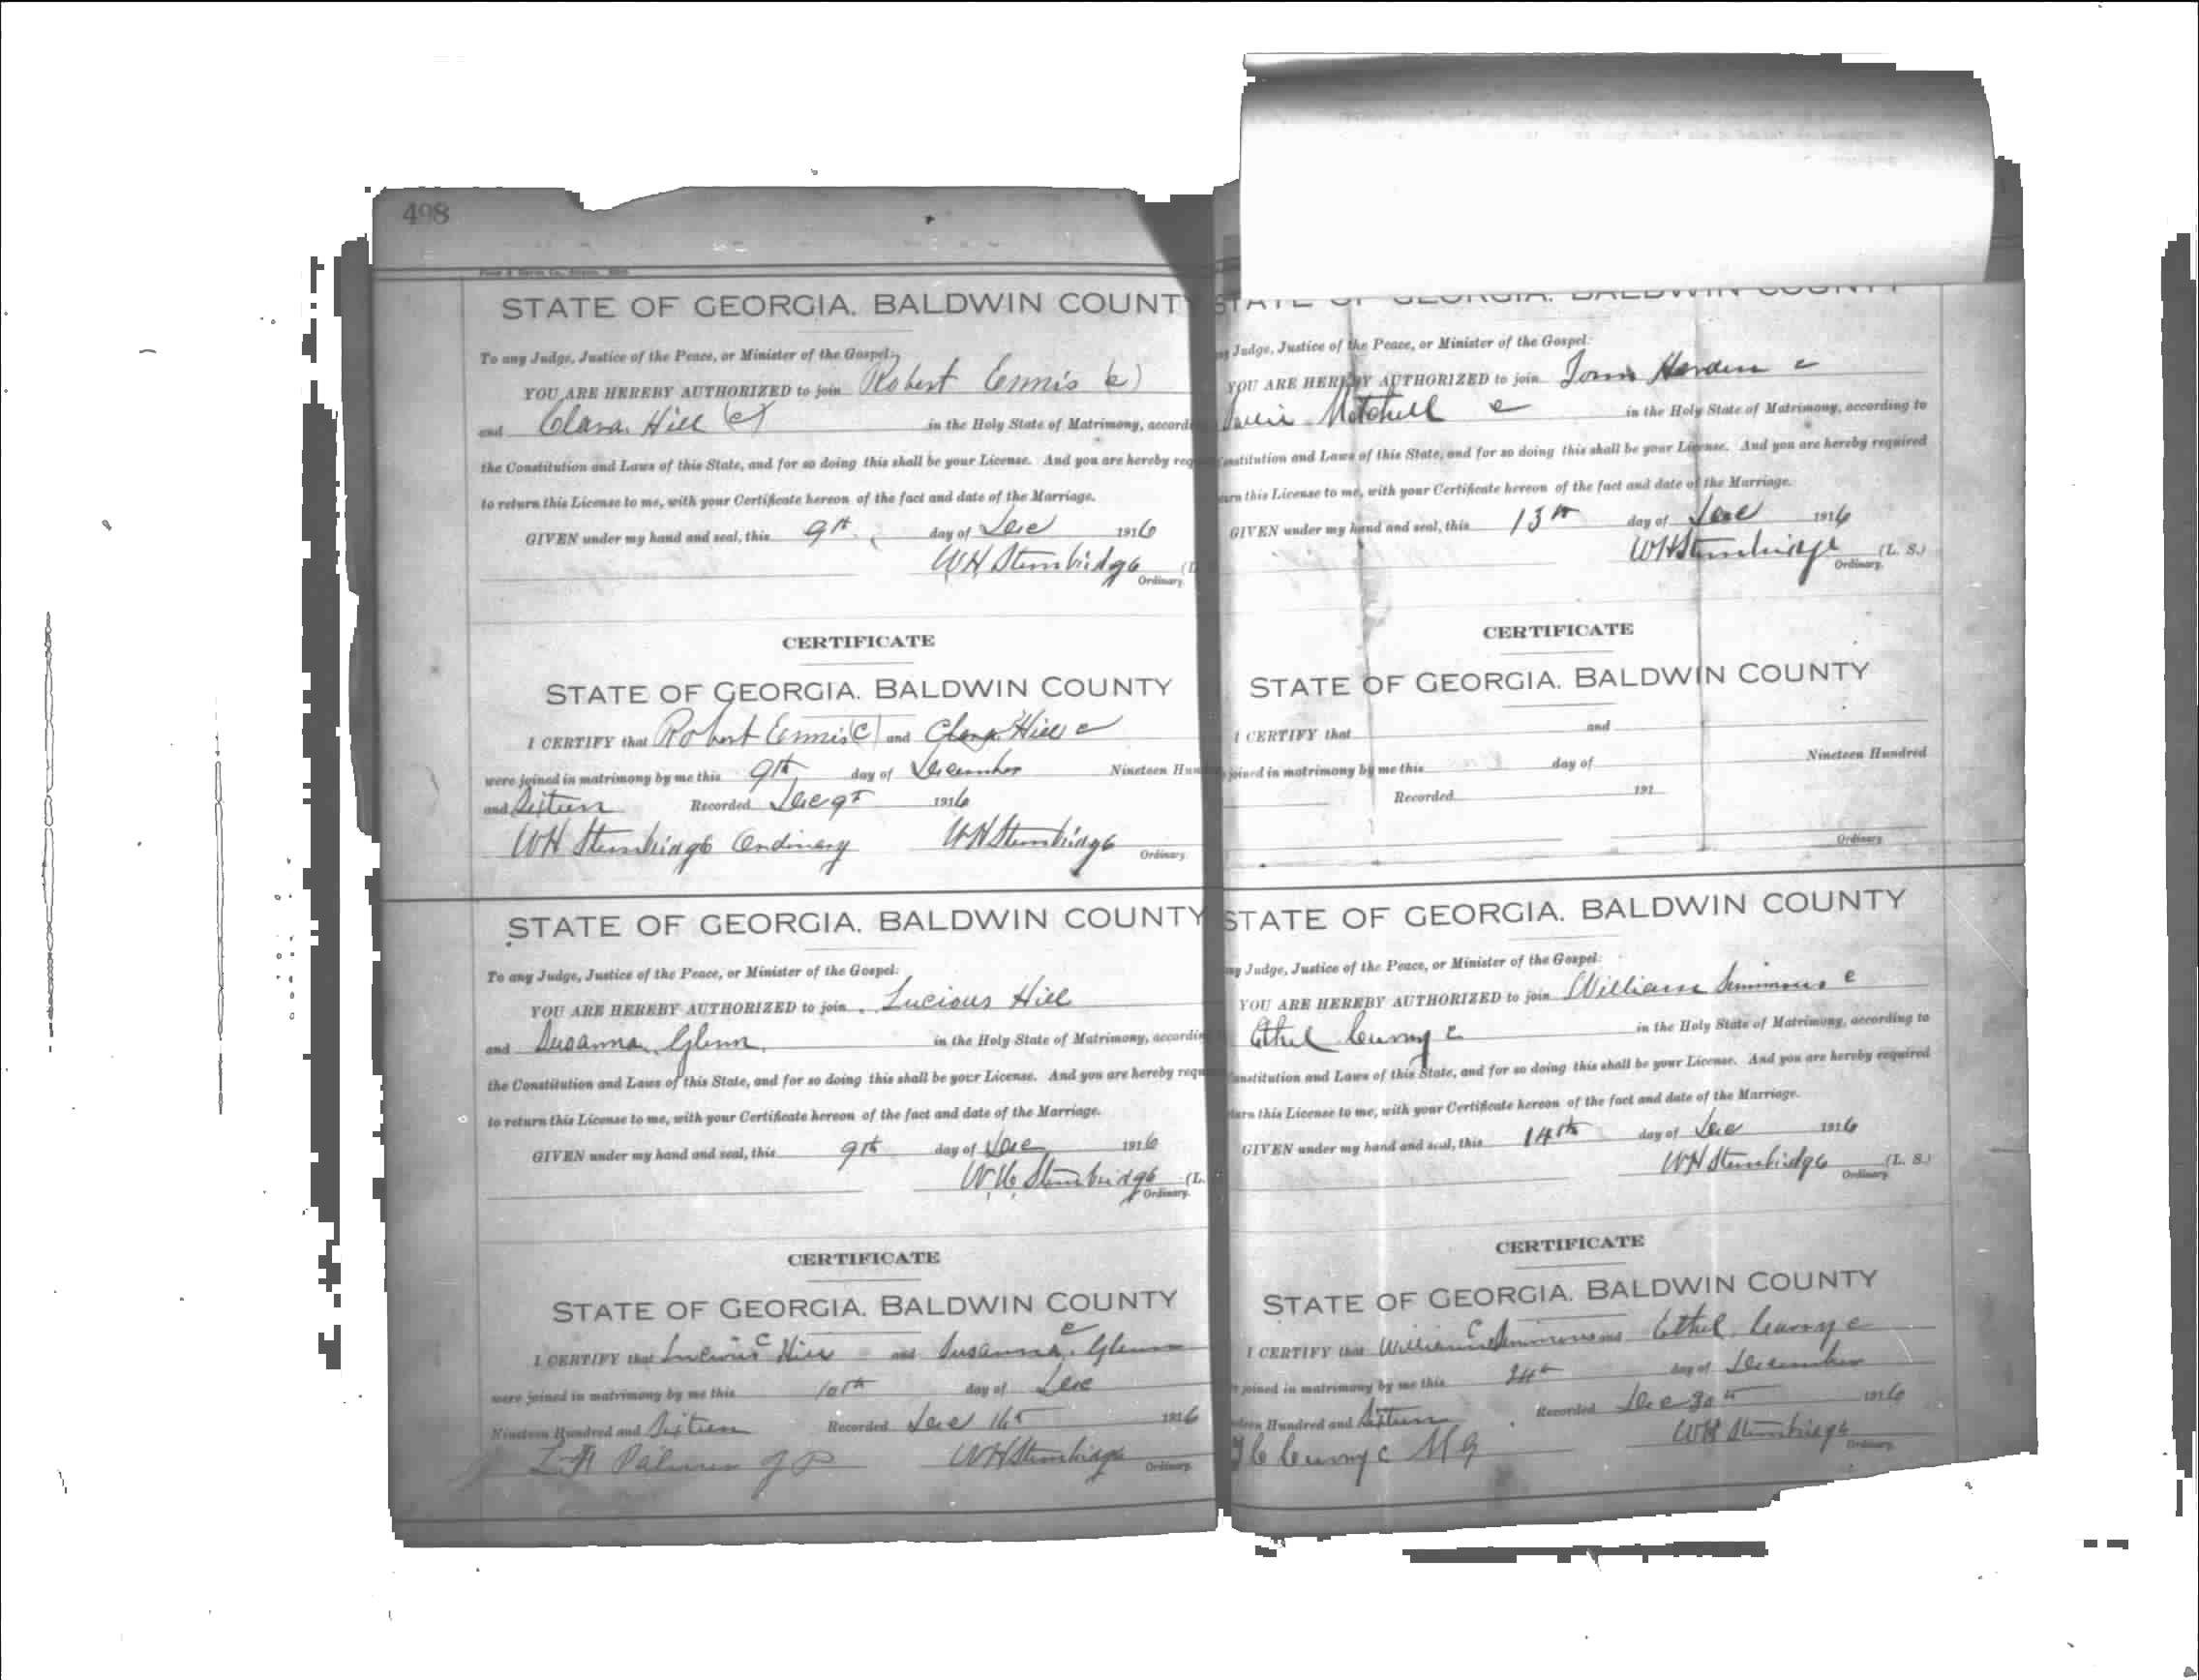 498
STATE OF GEORGIA. BALDWIN COUNT
To any Judge, Justice of the Peace, or Minister of the Gospel:
YOU ARE HEREBY AUTHORIZED to join Robert Ennis (c)
and Clara Hill (c) in the Holy State of Matrimony, accordi
the Constitution and Laws of this State, and for so doing this shall be your License. And you are hereby req
to return this License to me, with your Certificate hereon of the fact and date of the Marriage.
GIVEN under my hand and seal, this 9th day of Dec 1916
WH Stembridge (L
Ordinary.
CERTIFICATE
STATE OF GEORGIA. BALDWIN COUNTY
I CERTIFY that Robert Ennis (C) and Clara Hill c
were joined in matrimony by me this 9th day of December Nineteen Hun
and Sixteen Recorded Dec 9th 1916
WH Stembridge Ordinary WH Stembridge
Ordinary
STATE OF GEORGIA. BALDWIN COUNTY
To any Judge, Justice of the Peace, or Minister of the Gospel:
YOU ARE HEREBY AUTHORIZED to join Lucious Hill
and Susanna Glenn in the Holy State of Matrimony, accordin
the Constitution and Laws of this State, and for so doing this shall be your License. And you are hereby requ
to return this License to me, with your Certificate hereon of the fact and date of the Marriage.
GIVEN under my hand and seal, this 9th day of Dec 1916
W.H. Stembridge (L.
Ordinary.
CERTIFICATE
STATE OF GEORGIA. BALDWIN COUNTY
I CERTIFY that Lucious c Hill and Susanna c Glenn
were joined in matrimony by me this 10th day of Dec
Nineteen Hundred and Sixteen Recorded Dec 16th 1916
L H Palmer J P WH Stembridge
Ordinary
STATE OF GEORGIA. BALDWIN COUNTY
ny Judge, Justice of the Peace, or Minister of the Gospel:
YOU ARE HEREBY AUTHORIZED to join Harden c
Mitchell c in the Holy State of Matrimony, according to
Constitution and Laws of this State, and for so doing this shall be your License. And you are hereby required
urn this License to me, with your Certificate hereon of the fact and date of the Marriage.
GIVEN under my hand and seal, this 13th day of Dec 1916
WH Stembridge (L. S.)
Ordinary.
CERTIFICATE
STATE OF GEORGIA. BALDWIN COUNTY
I CERTIFY that and
joined in matrimony by me this day of Nineteen Hundred
Recorded 191
Ordinary
STATE OF GEORGIA. BALDWIN COUNTY
ny Judge, Justice of the Peace, or Minister of the Gospel:
YOU ARE HEREBY AUTHORIZED to join William Simmons c
Ethel Curry c in the Holy State of Matrimony, according to
onstitution and Laws of this State, and for so doing this shall be your License. And you are hereby required
turn this License to me, with your Certificate hereon of the fact and date of the Marriage.
GIVEN under my hand and seal, this 14th day of Dec 1916
WH Stembridge (L. S.)
Ordinary
CERTIFICATE
STATE OF GEORGIA. BALDWIN COUNTY
I CERTIFY that William c Simmons and Ethel Curry c
joined in matrimony by me this 24th day of December
teen Hundred and Sixteen Recorded Dec 30th 1916
Curry c M G WH Stembridge
Ordinary.